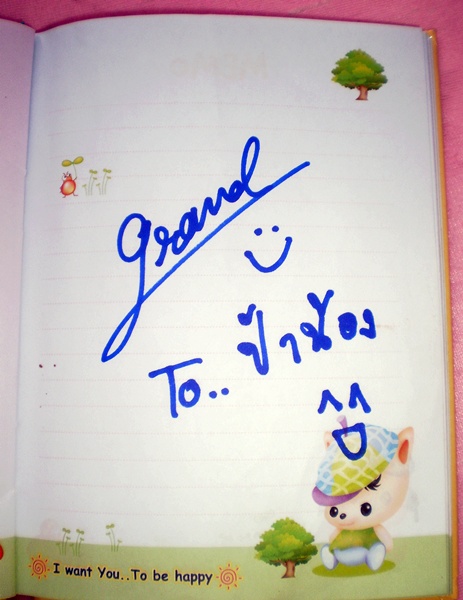 Grand
To.. ป้าน้อง
I want You..To be happy